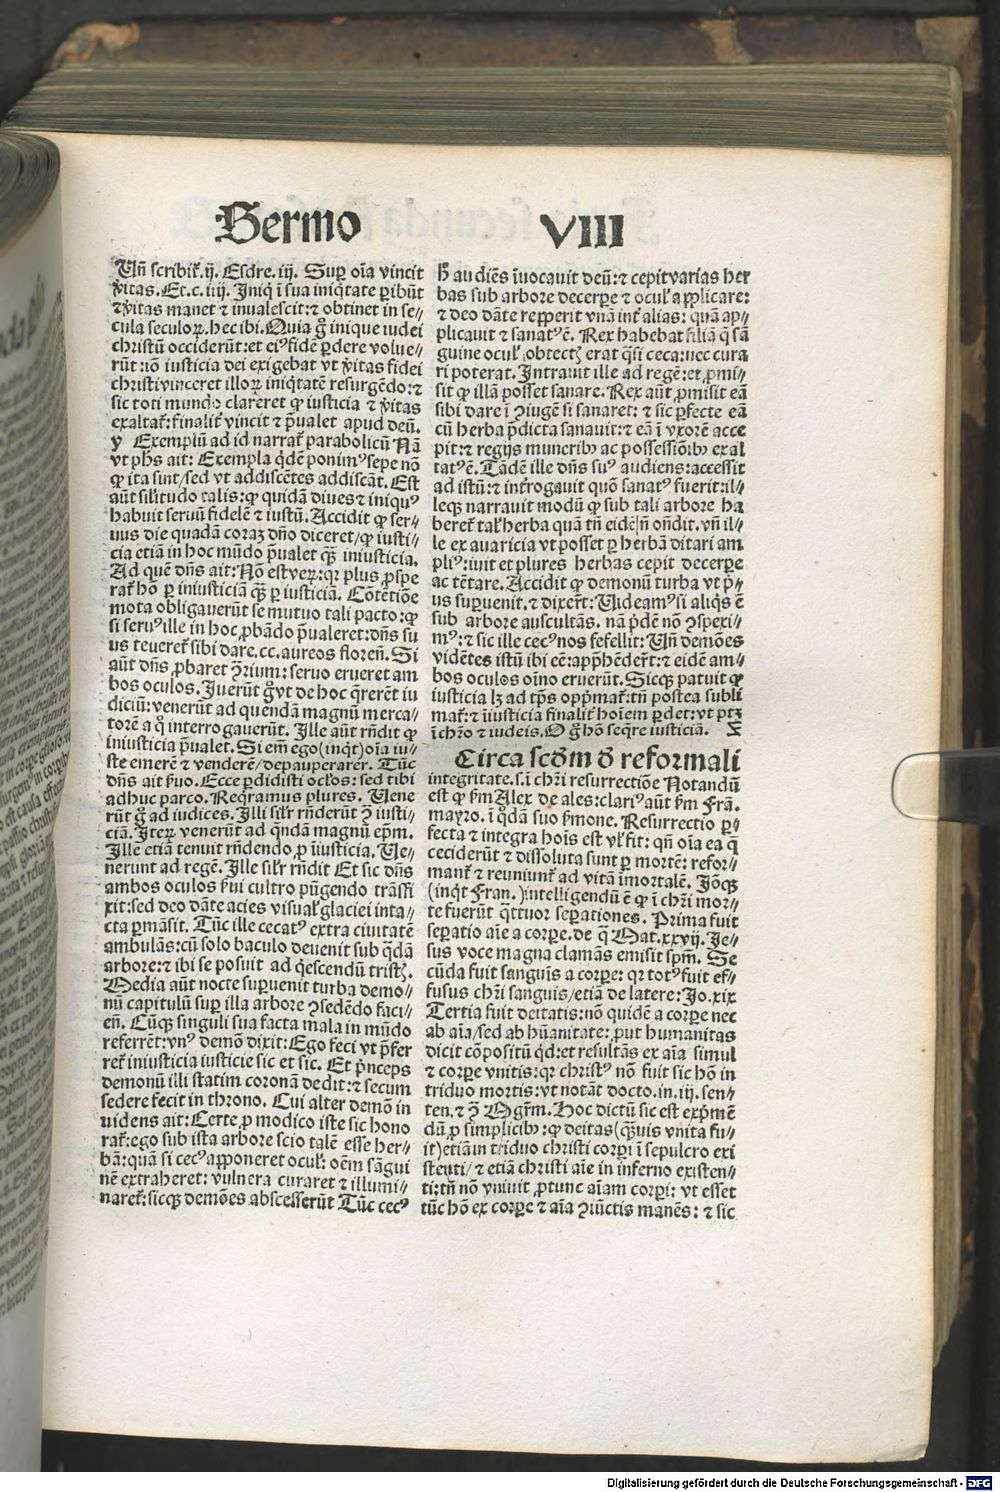 Sermo VIII
Vñ scribit᷑.ij. Esdre. iij. Sup oĩa vincit
v̾itas. Et.c. iiij. Iniq̃ ĩ sua iniq̃tate ꝑibũt
⁊ v̾itas manet ⁊ inualescit:⁊ obtinet in se⸗
cula seculoꝝ. hec ibi. Quia g̃ inique iudei
christũ occiderũt:et eiꝰ fidẽ ꝑdere volue⸗
rũt:iõ iusticia dei exigebat vt v̾itas fidei
christi vinceret illoꝝ iniq̃tatẽ resurgẽdo:⁊
sic toti mundo clareret ꝙ iusticia ⁊ v̾itas
exaltat᷑: finalit᷑ vincit ⁊ p̃ualet apud deũ.
y Exemplũ ad id narrat᷑ parabolicũ Nã
vt ph̃s ait: Exempla q̃dẽ ponimꝰ sepe nõ
ꝙ ita sint/sed vt addiscẽtes addiscãt. Est
aũt sil̾itudo talis:ꝙ quidã diues ⁊ iniquꝰ
habuit seruũ fidelẽ ⁊ iustũ. Accidit ꝙ ser⸗
uus die quadã coraʒ dño diceret/ꝙ iusti⸗
cia etiã in hoc mũdo p̃ualet q̃ꝫ iniusticia.
Ad quẽ dñs ait: Nõ est veꝝ: qꝛ plus ꝓspe
rat᷑ hõ ꝑ iniusticiã q̃ꝫ ꝑ iusticiã. Cõtẽtiõe
mota obligauerũt se mutuo tali pacto:ꝙ
si seruꝰ ille in hoc ꝓbãdo p̃ualeret:dñs su
us teneret᷑ sibi dare.cc. aureos floreñ. Si
aũt dñs ꝓbaret ꝯ̾rium: seruo erueret am
bos oculos. Iuerũt g̃ vt de hoc q̃rerẽt iu
diciũ: venerũt ad quendã magnũ merca⸗
torẽ a q̃ interrogauerũt. Ille aũt rñdit ꝙ
iniusticia p̃ualet. Si em̃ ego (inq̃t) oĩa iu⸗
ste emerẽ ⁊ venderẽ/depauperarer. Tũc
dñs ait s̾uo. Ecce ꝑdidisti oc̾los: sed tibi
adhuc parco. Req̃ramus plures. Vene
rũt g̃ ad iudices. Illi sil̾r rñderũt ꝯ̃ iusti⸗
ciã. Iteꝝ venerũt ad q̃ndã magnũ ep̃m.
Illẽ etiã tenuit rñdendo ꝓ ĩiusticia. Ve⸗
nerunt ad regẽ. Ille sil̾r rñdit Et sic dñs
ambos oculos s̾ui cultro pũgendo trãsfi
xit:sed deo dãte acies visual᷑ glaciei inta⸗
cta ꝑmãsit. Tũc ille cecatꝰ extra ciuitatẽ
ambulãs:cũ solo baculo deuenit sub q̃dã
arbore:⁊ ibi se posuit ad q̃escendũ tristꝫ.
Media aũt nocte suꝑuenit turba demo⸗
nũ capitulũ suꝑ illa arbore ꝯsedẽdo faci⸗
eñ. Cũqꝫ singuli sua facta mala in mũdo
referrẽt:vnꝰ demõ dixit: Ego feci vt p̃fer
ret᷑ iniusticia iusticie sic et sic. Et p̃nceps
demonũ illi statim coronã dedit:⁊ secum
sedere fecit in throno. Cui alter demõ in
uidens ait: Certe ꝓ modico iste sic hono
rat᷑:ego sub ista arbore scio talẽ esse her⸗
bã:quã si cecꝰ apponeret ocul᷑: oẽm sãgui
nẽ extraheret: vulnera curaret ⁊ illumi⸗
naret᷑:sicqꝫ demões abscesserũt Tũc cecꝰ
h̾ audiẽs ĩuocauit deũ:⁊ cepit varias her
bas sub arbore decerꝑe ⁊ ocul᷑ applicare:
⁊ deo dãte reꝑerit vnã int᷑ alias: quã ap⸗
plicauit ⁊ sanatꝰ ẽ. Rex habebat filiã q̃ sã
guine ocul᷑ obtectꝫ erat q̃si ceca:nec cura
ri poterat. Intrauit ille ad regẽ:et ꝓmi⸗
sit ꝙ illã posset sanare. Rex aũt ꝓmisit eã
sibi dare ĩ ꝯiugẽ si sanaret: ⁊ sic ꝑfecte eã
cũ herba p̃dicta sanauit:⁊ eã ĩ vxorẽ acce
pit:⁊ regijs munerib᷒ ac possessiõib᷒ exal
tatꝰ ẽ. Tãdẽ ille dñs suꝰ audiens:accessit
ad istũ:⁊ int᷑rogauit quõ sanatꝰ fuerit:il⸗
leqꝫ narrauit modũ ꝙ sub tali arbore ha
beret᷑ tal᷑ herba quã tñ eidẽ nõ oñdit. vñ il⸗
le ex auaricia vt posset ꝑ herbã ditari am
pliꝰ:iuit et plures herbas cepit decerꝑe
ac tẽtare. Accidit ꝙ demonũ turba vt p̾⸗
us suꝑuenit. ⁊ dixer̃t: Videamꝰ si aliq̃s ẽ
sub arbore auscultãs. nã p̾dẽ nõ ꝯspexi⸗
mꝰ:⁊ sic ille cecꝰ nos fefellit: Vñ demões
vidẽtes istũ ibi eẽ:app̃hẽder̃t:⁊ eidẽ am⸗
bos oculos oĩno eruerũt. Sicqꝫ patuit ꝙ
iusticia lꝫ ad tp̃s opp̃mat᷑:tñ postea subli
mat᷑:⁊ ĩiusticia finalit᷑ hoĩem ꝑdet:vt ptꝫ
ĩ chr̃o ⁊ iudeis. O g̃ hõ seq̃re iusticiam.
Circa scd̃m d̃ reformali
integritate.s.ĩ chr̃i resurrectiõe Notandũ
est ꝙ s̃m Alex de ales:clariꝰ aũt s̃m Frã.
mayro. ĩ q̃dã suo s̾mone. Resurrectio ꝑ⸗
fecta ⁊ integra hoĩs est vl̾ fit: qñ oĩa ea q̃
ceciderũt ⁊ dissoluta sunt ꝑ mortẽ: refor⸗
mant᷑ ⁊ reuniunt᷑ ad vitã ĩmortalẽ. Iõqꝫ
(inq̃t Fran.)intelligendũ ẽ ꝙ ĩ chr̃i mor⸗
te fuerũt q̃ttuor seꝑationes. Prima fuit
seꝑatio aĩe a corꝑe. de q̃ Mat. xxvij. Je⸗
sus voce magna clamãs emisit sp̃m. Se
cũda fuit sanguĩs a corꝑe: qꝛ totꝰ fuit ef⸗
fusus chr̃i sanguis/etiã de latere: Jo. xix
Tertia fuit deitatis:nõ quidẽ a corꝑe nec
ab aĩa/sed ab hũanitate: ꝓut humanitas
dicit cõpositũ qd̾:et resultãs ex aĩa simul
⁊ corꝑe vnitis: qꝛ christꝰ nõ fuit sic hõ in
triduo mortis:vt notãt docto. in. iij. sen⸗
ten. ⁊ ꝑ Mgr̃m. Hoc dictũ sic est exp̃mẽ
dũ ꝓ simplicib᷒:ꝙ deitas (q̃ꝫuis vnita fu⸗
it)etiã in triduo christi corꝑi ĩ sepulcro exi
stenti/ ⁊ etiã christi aĩe in inferno existen⸗
ti:tñ nõ vniuit ꝓtunc aĩam corꝑi: vt esset
tũc hõ ex corꝑe ⁊ aĩa ꝯiũctis manẽs: ⁊ sic
Digitalisierung gefördert durch die Deutsche Forschungsgemeinschaft - DFG